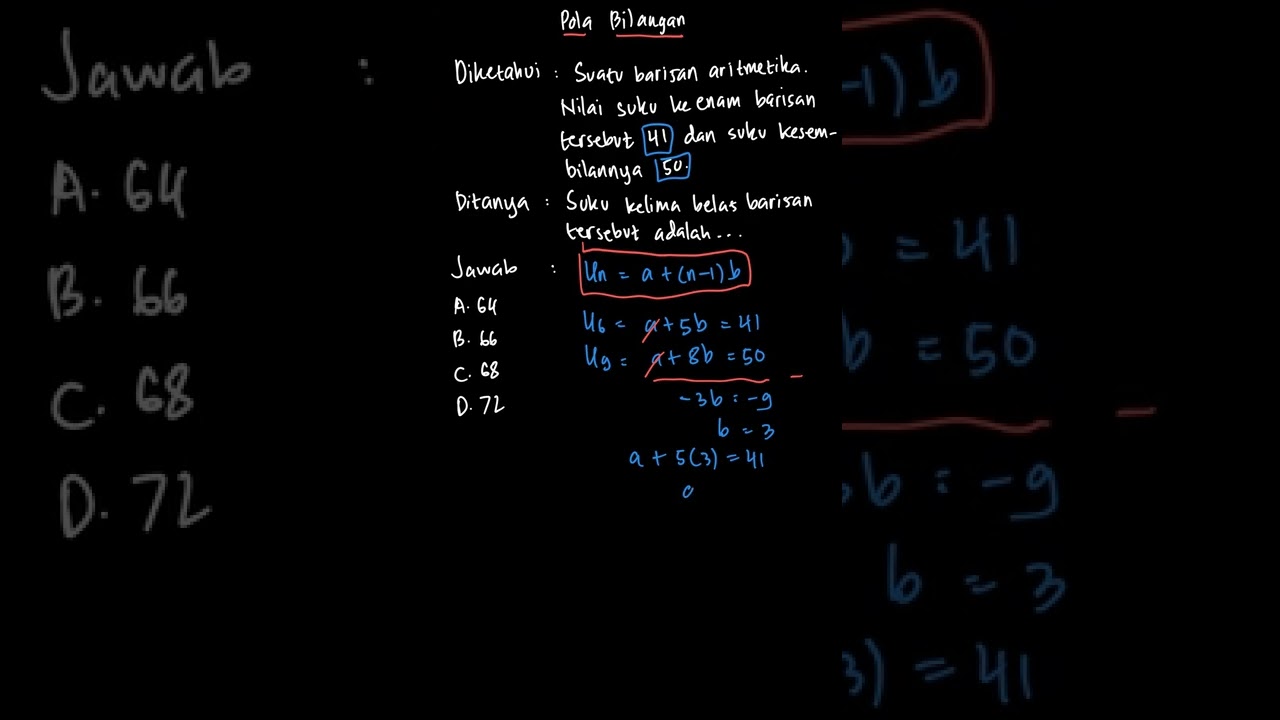 Pola Bilangan
Diketahui : Suatu barisan aritmetika.
Nilai suku ke enam barisan
tersebut 41 dan suku kesem-
bilannya 50.
Ditanya : Suku kelima belas barisan
tersebut adalah...
Jawab : Un = a + (n-1) b
A. 64
B. 66
C. 68
D. 72
U6 = a + 5b = 41
U9 = a + 8b = 50 -
-3b = -9
b = 3
a + 5(3) = 41
Jawab :
A. 64
B. 66
C. 68
D. 72
-1) b
= 41
b = 50
-
b = -9
b = 3
3) = 41